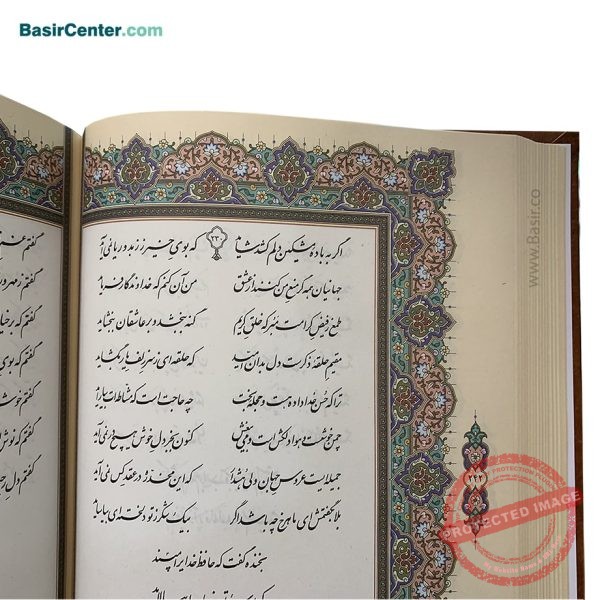 BasirCenter.com
۲۳۰
اگر به باده مشکین دلم کشد شاید که بوی خیر ز زهد و ریا نمی آید
جهانیان همه گر منع من کنند از عشق من آن کنم که خداوندگار فرماید
طمع ز فیض کرامت مبر که خلق کریم گنه ببخشد و بر عاشقان ببخشاید
مقیم حلقه ذکرست دل بدان امید که حلقه ای ز سر زلف یار بگشاید
ترا که حسن خداداده هست و حجله بخت چه حاجت است که مشاطه ات بیاراید
چمن خوشست و هوا دلکش است و می بیغش کنون بجز دل خوش هیچ در نمی باید
جمیله ایست عروس جهان ولی هشدار که این مخدره در عقد کس نمی آید
بلابه گفتمش ای ماهرخ چه باشد اگر بیک شکر ز تو دلخسته ای بیاساید
بخنده گفت که حافظ خدا را مپسند
گفتم
گفتم ز مهرور
گفتم که بر خیا
گفتم که بوی
گفتم خوش
گفتم که نوش
گفتم دل
www.Basir.co
PROTECTED IMAGE